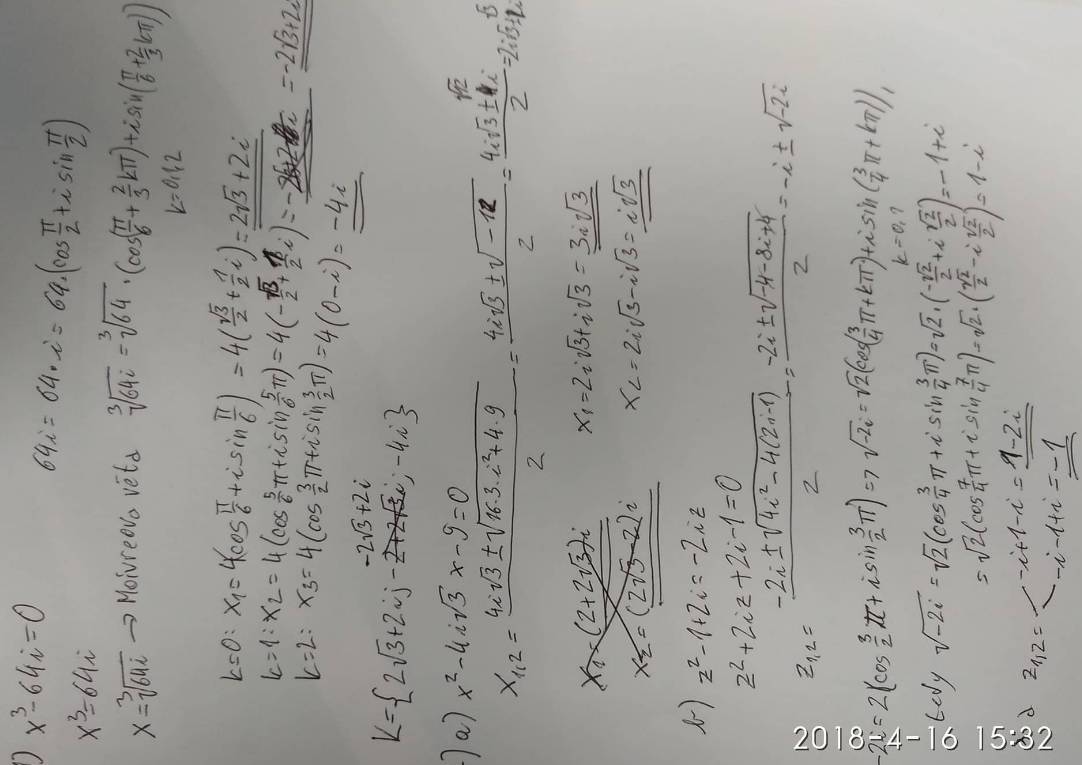 1) x³-64i=0
x³=64i
64i = 64·i = 64·(cos π/2 + i sin π/2)
x=∛64i → Moivreova věta ∛64i = ∛64 · (cos(π/6 + 2/3 kπ) + i sin(π/6 + 2/3 kπ))
k=0,1,2
k=0: x₁ = 4(cos π/6 + i sin π/6) = 4(√3/2 + 1/2 i) = 2√3+2i
k=1: x₂ = 4(cos 5/6 π + i sin 5/6 π) = 4(-√3/2 + 1/2 i) = = -2√3+2i
k=2: x₃ = 4(cos 3/2 π + i sin 3/2 π) = 4(0-i) = -4i
-2√3+2i
K={2√3+2i; -2+2√3i; -4i}
a) x²-4i√3 x-9=0
x₁,₂ = (4i√3 ± √(16·3·i²+4·9))/2 = (4i√3 ± √-12)/2 = (4i√3 ± √12 i)/2 = 2i√3±√3i
x₁=(2+2√3)i
x₁=2i√3+i√3 = 3i√3
x₂=(2√3-2)i
x₂=2i√3-i√3 = i√3
b) z²-1+2i=-2iz
z²+2iz+2i-1=0
z₁,₂ = (-2i ± √(4i²-4(2i-1)))/2 = (-2i ± √(-4-8i+4))/2 = -i ± √-2i
-2i = 2(cos 3/2 π + i sin 3/2 π) => √-2i = √2(cos(3/4 π + kπ) + i sin(3/4 π + kπ)),
k=0,1
tedy √-2i = √2(cos 3/4 π + i sin 3/4 π) = √2·(-√2/2 + i √2/2) = -1+i
= √2(cos 7/4 π + i sin 7/4 π) = √2·(√2/2 - i √2/2) = 1-i
z₁,₂ = -i+1-i = 1-2i
-i-1+i = -1
2018-4-16 15:32